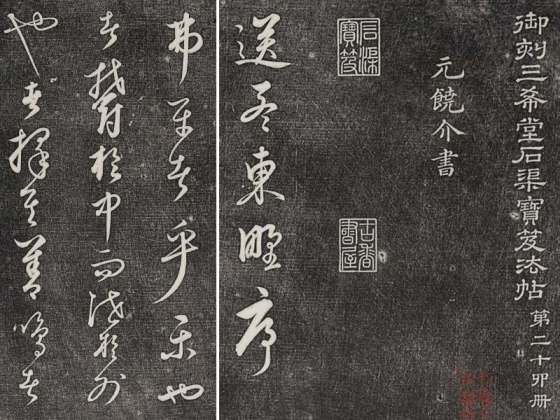 御刻三希堂石渠寶笈法帖 第二十四册
元饒介書
石渠寶笈
古香書屋
送孟東野序
弗平者乎樂也
者鬱於中而泄於外
也者擇其善鳴者